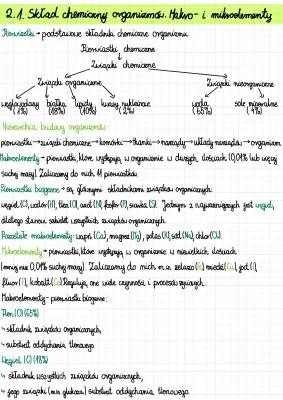 2.1. Skład chemiczny organizmów. Makro- i mikroelementy
Pierwiastki - podstawowe składniki chemiczne organizmu.
Pierwiastki chemiczne
Związki chemiczne
Związki organiczne
Związki nieorganiczne
węglowodany białka lipidy kwasy nukleinowe woda sole mineralne
(1%) (18%) (10%) (2%) (65%) (4%)
Hierarchia budowy organizmu:
pierwiastki → związki chemiczne → komórki → tkanki → narządy → układy narządów → organizm
Makroelementy - pierwiastki, które występują w organizmie w dużych ilościach (0,01% lub więcej
suchej masy). Zaliczamy do nich 11 pierwiastków.
Pierwiastki biogenne - są głównymi składnikami związków organicznych:
węgiel (C), wodór (H), tlen (O), azot (N), fosfor (P), siarka (S). Jednym z najważniejszych jest węgiel,
dlatego stanowi szkielet wszystkich związków organicznych.
Pozostałe makroelementy: wapń (Ca), magnez (Mg), potas (K), sód (Na), chlor (Cl).
Mikroelementy - pierwiastki, które występują w organizmie w niewielkich ilościach
(mniej niż 0,01% suchej masy). Zaliczamy do nich m.in. żelazo (Fe), miedź (Cu), jod (I),
fluor (F), kobalt (Co). Regulują one wiele czynności i procesów życiowych.
Makroelementy - pierwiastki biogenne:
Tlen (O) (65%)
↳ składnik związków organicznych,
↳ substrat oddychania tlenowego.
Węgiel (C) (18%)
↳ składnik wszystkich związków organicznych,
↳ jego związki (min glukoza) substrat oddychania tlenowego.